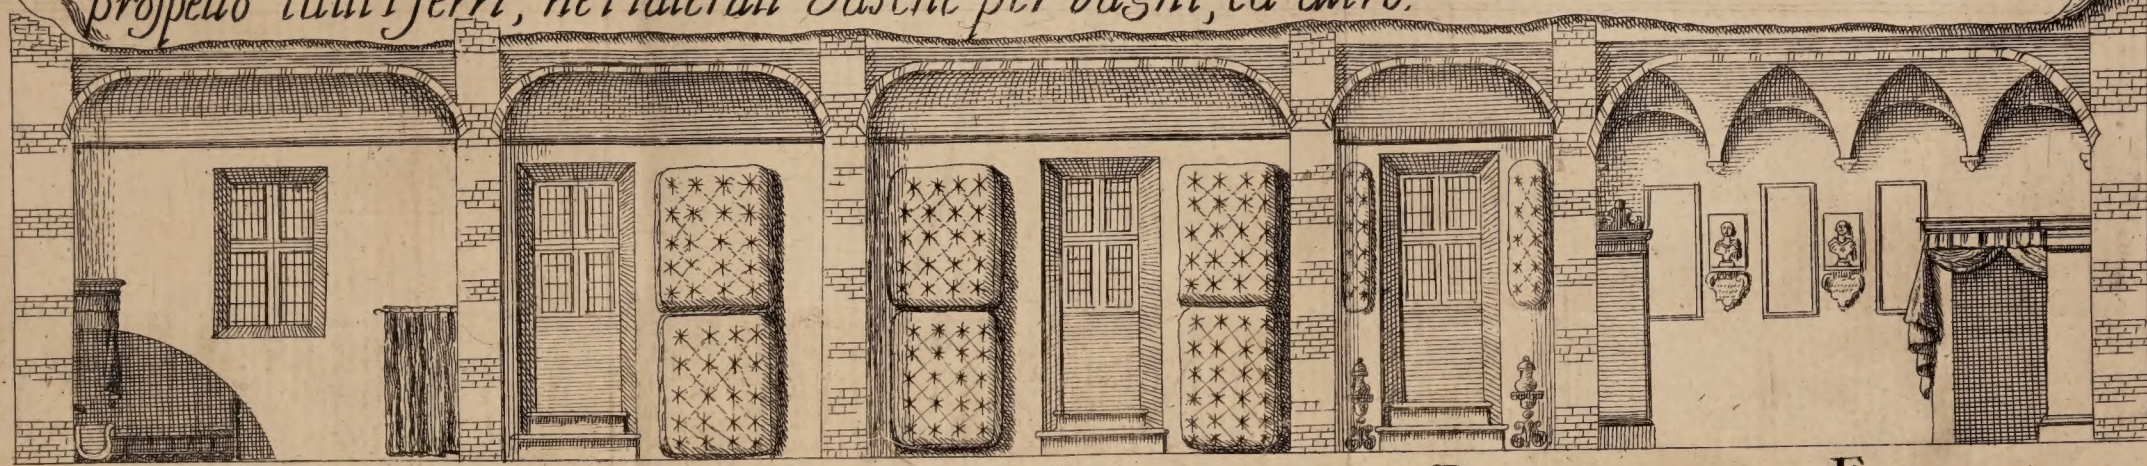 prospetto tutti i ferri, nei laterali Vasche per bagni, ed altro.
E